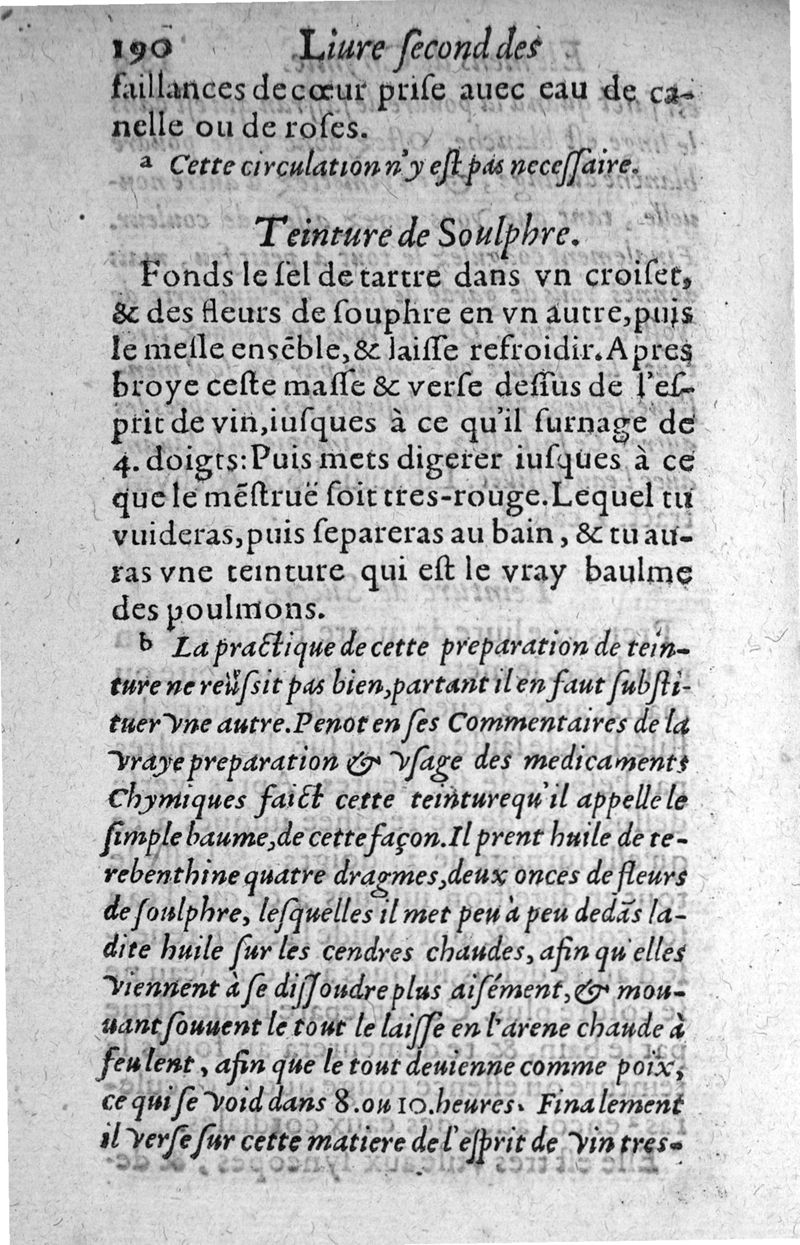 190 Liure ſecond des
faillances de cœur priſe auec eau de ca-
nelle ou de roſes.
a Cette circulation n'y eſt pas neceſſaire.
Teinture de Soulphre.
Fonds le ſel de tartre dans vn croiſet,
& des fleurs de ſouphre en vn autre, puis
le meſle enſēble, & laiſſe refroidir. Apres
broye ceſte maſſe & verſe deſſus de l'eſ-
prit de vin, iuſques à ce qu'il ſurnage de
4. doigts: Puis mets digerer iuſques à ce
que le mēſtruë ſoit tres-rouge. Lequel tu
vuideras, puis ſepareras au bain, & tu au-
ras vne teinture qui eſt le vray baulme
des poulmons.
b La practique de cette preparation de tein-
ture ne reüſsit pas bien, partant il en faut ſubſti-
tuer vne autre. Penot en ſes Commentaires de la
vraye preparation & vſage des medicaments
Chymiques faict cette teinture qu'il appelle le
ſimple baume, de cette façon. Il prent huile de te-
rebenthine quatre dragmes, deux onces de fleurs
de ſoulphre, leſquelles il met peu à peu dedãs la-
dite huile ſur les cendres chaudes, afin qu'elles
viennent à ſe diſſoudre plus aiſément, & mou-
uant ſouuent le tout le laiſſe en l'arene chaude à
feu lent, afin que le tout deuienne comme poix,
ce qui ſe void dans 8. ou 10. heures. Finalement
il verſe ſur cette matiere de l'eſprit de vin tres-